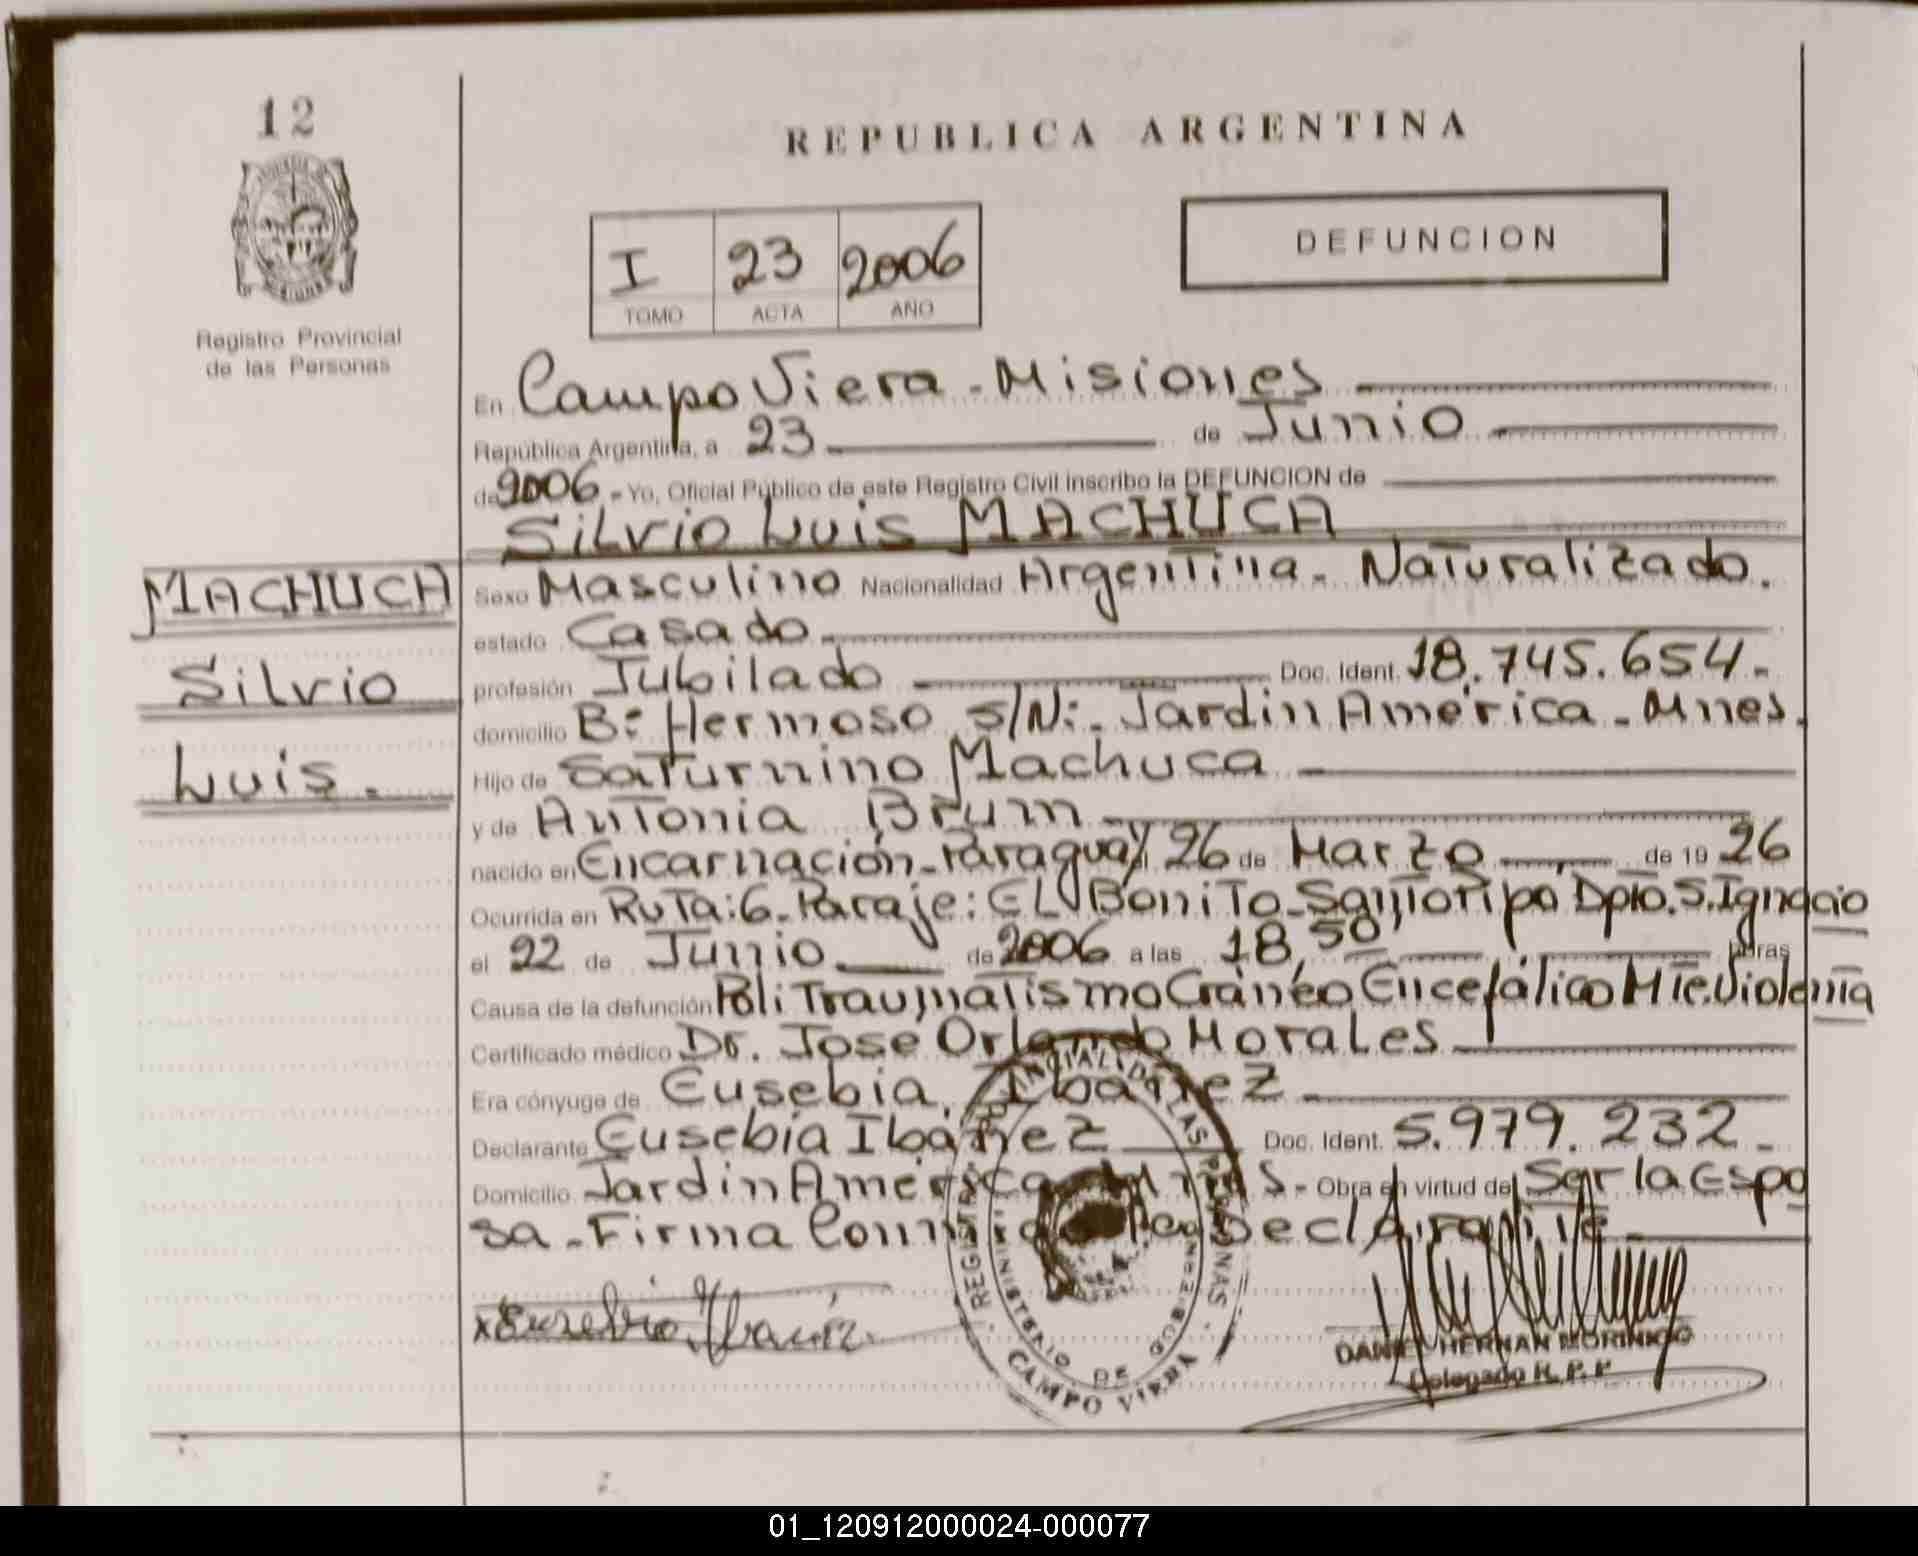 12
REPUBLICA ARGENTINA
Registro Provincial
de las Personas
I 23 2006
TOMO ACTA AÑO
DEFUNCION
En Campo Viera - Misiones
República Argentina, a 23 de Junio
de 2006 - Yo, Oficial Público de este Registro Civil inscribo la DEFUNCION de
Silvio Luis MACHUCA
MACHUCA
Silvio
Luis.
Sexo Masculino Nacionalidad Argentina - Naturalizado.
estado Casado.
profesión Jubilado Doc. Ident. 18.745.654.-
domicilio Bº Hermoso S/Nº- Jardin América - Mnes.
Hijo de Saturnino Machuca
y de Antonia Brum
nacido en Encarnación - Paraguay el 26 de Marzo de 19 26
Ocurrida en Ruta: 6 - Paraje: EL Bonito - Santo Pipo, Dpto. S. Ignacio
el 22 de Junio de 2006 a las 18,50 horas
Causa de la defunción Poli Traumatismo Cráneo Encefálico Mte. Violenta
Certificado médico Dr. Jose Orlando Morales
Era cónyuge de Eusebia Ibañez
Declarante Eusebia Ibañez Doc. Ident. 5.979.232.-
Domicilio Jardin América - Mnes - Obra en virtud de Ser la Espo
sa - Firma Conmigo la Declarante
x Eusebia Ibañez
REGISTRO PROVINCIAL DE LAS PERSONAS
MINISTERIO DE GOBIERNO
CAMPO VIERA
DANIEL HERNAN MORINIGO
Delegado R. P. P.
01_120912000024-000077